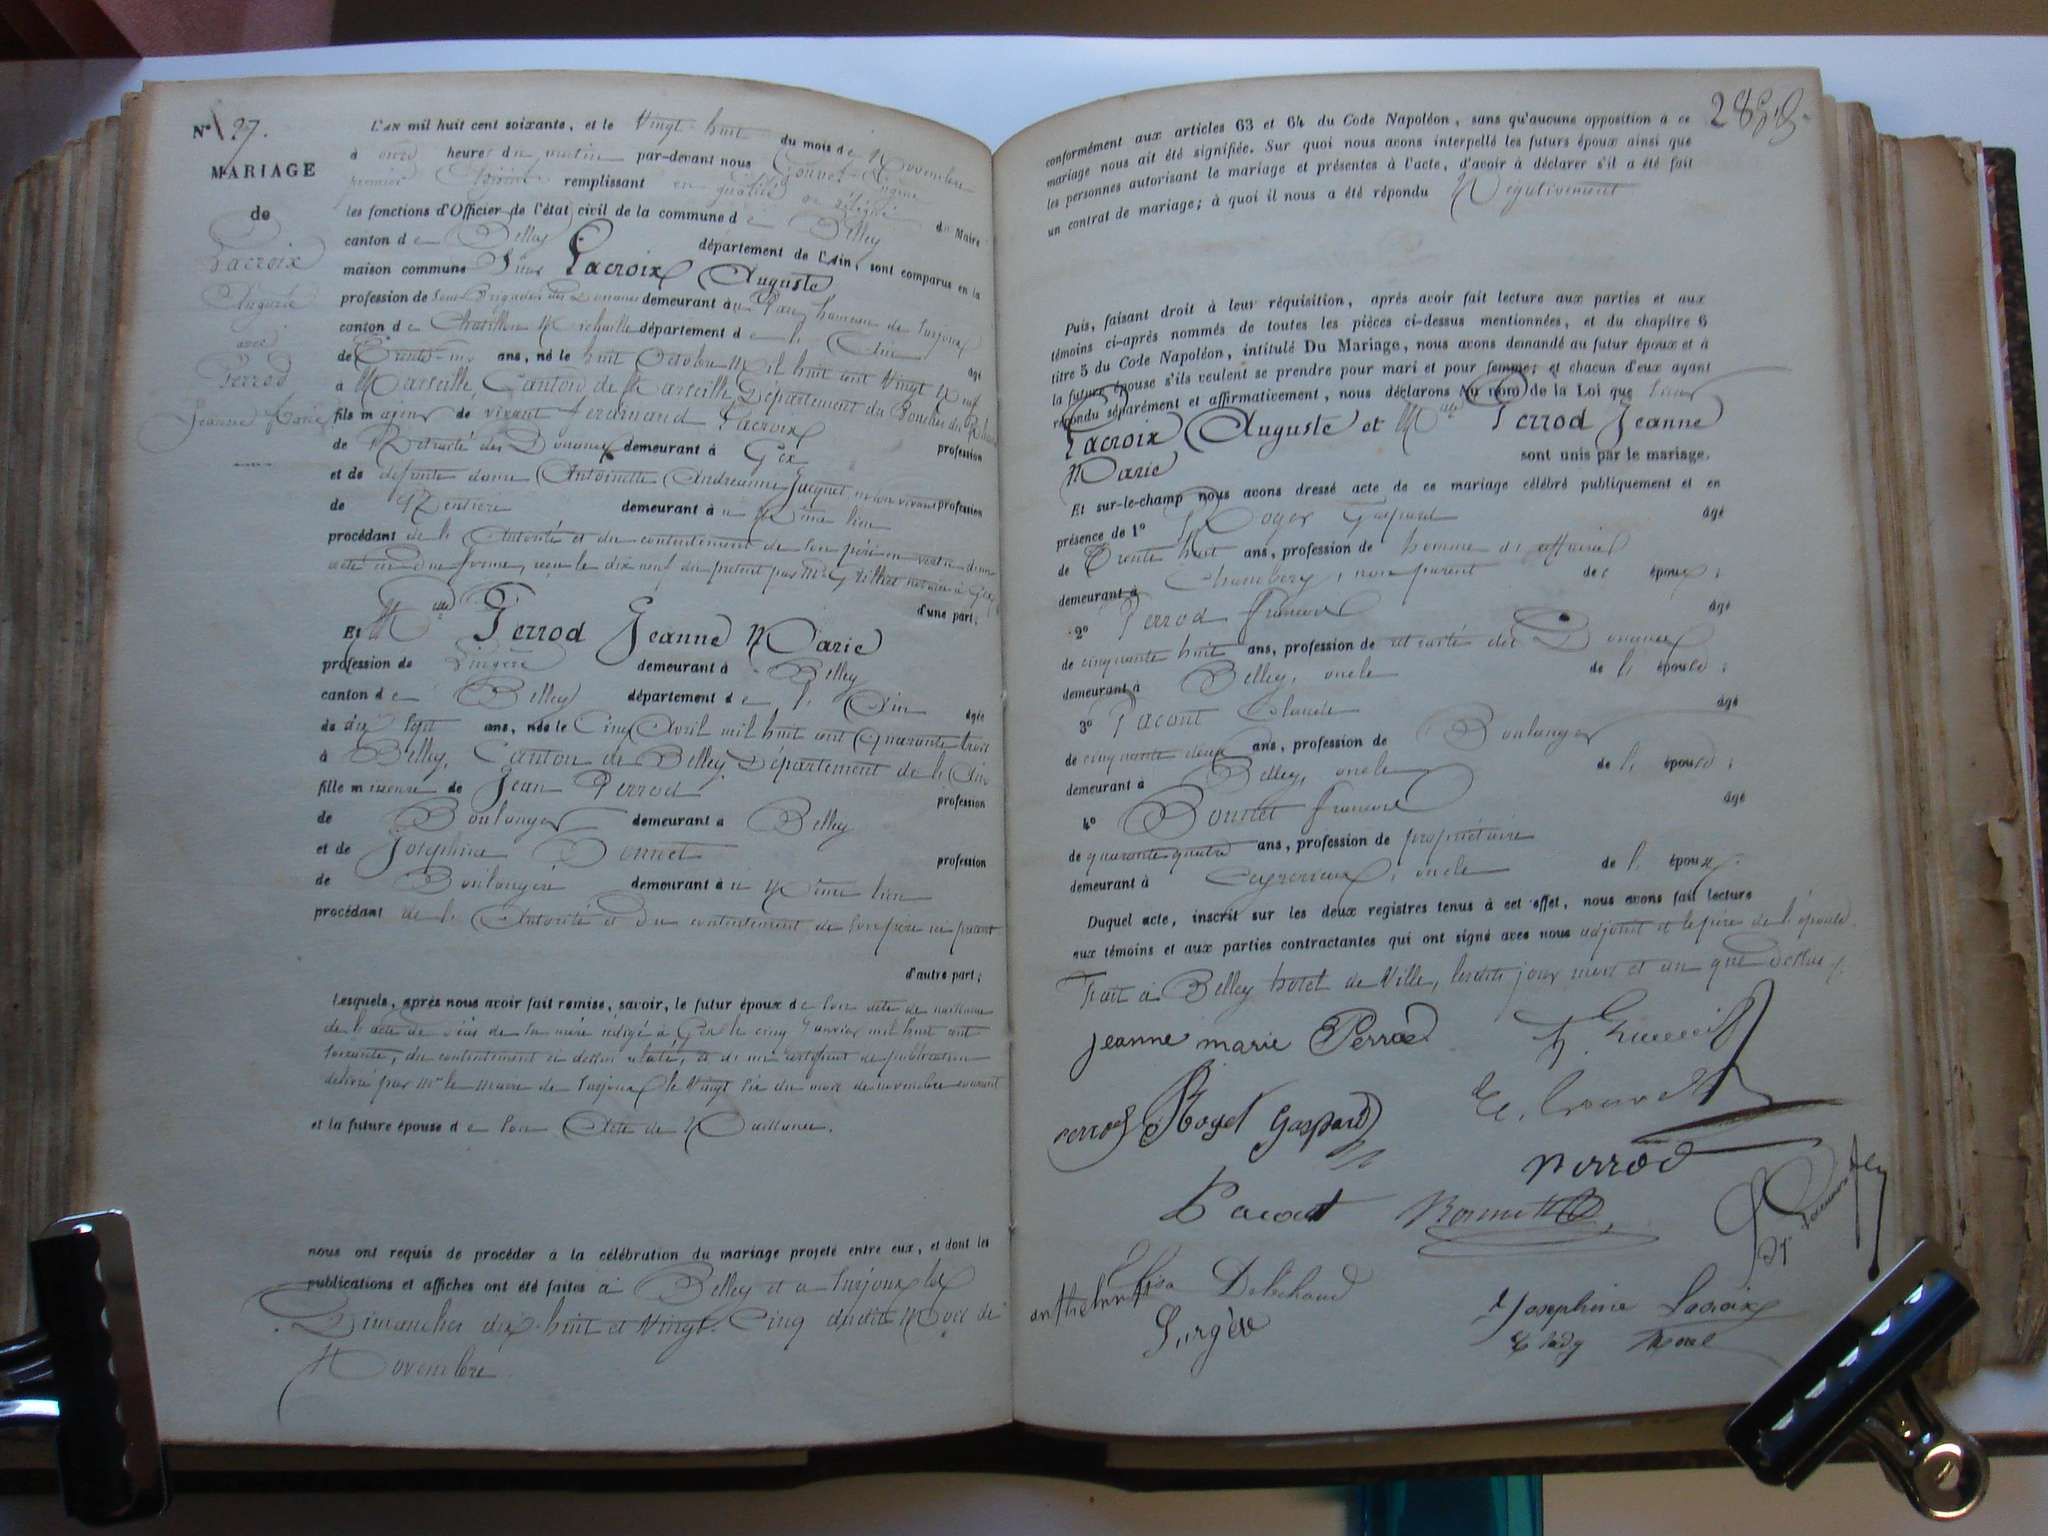 N° 27.
MARIAGE
de
Lacroix
Auguste
avec
Perrod
Jeanne Marie
L'AN mil huit cent soixante, et le Vingt-huit du mois de Novembre
à heures du matin par-devant nous Gouvet Eugène
premier Adjoint remplissant en qualité de délégué du Maire
les fonctions d'Officier de l'état civil de la commune de Belley
canton de Belley département de l'Ain, sont comparus en la
maison commune Sieur Lacroix Auguste
profession de Sous Brigadier des Douanes demeurant au hameau de Surjoux
canton de Chatillon Michaille département de l'Ain âgé
de Trente-un ans, né le huit Octobre Mil huit cent Vingt Neuf
à Marseille, Canton de Marseille, Département du Bouches du Rhône
fils majeur de vivant Ferdinand Lacroix profession
de Retraité des Douanes demeurant à Gex
et de defunte dame Antoinette Andreanne Jacquet en son vivant profession
de Rentière demeurant à u Même lieu
procédant de l'Autorité et du consentement de son père en vertu d'un
acte en due forme, reçu le dix neuf du présent par Me notaire à Gex
d'une part;
Et Melle Perrod Jeanne Marie
profession de Lingère demeurant à Belley
canton de Belley département de l'Ain âgée
de dix sept ans, née le Cinq Avril mil huit cent Quarante trois
à Belley, Canton de Belley Département de l'Ain
fille mineure de Jean Perrod profession
de Boulanger demeurant à Belley
et de Josephine Bonnet profession
de Boulangère demeurant au Même lieu
procédant de l'Autorité et du consentement de son père ici présent
d'autre part;
Lesquels, après nous avoir fait remise, savoir, le futur époux de son acte de naissance
de l'acte de décès de sa mère rédigé à Gex le cinq Janvier mil huit cent
soixante, du consentement ci dessus relaté, et d'un certificat de publication
délivré par Mr le maire de Surjoux le Vingt six du mois de novembre courant
et la future épouse de son Acte de Naissance.
nous ont requis de procéder à la célébration du mariage projeté entre eux, et dont les
publications et affiches ont été faites à Belley et à Surjoux les
Dimanches dix-huit et Vingt-Cinq dudit Mois de
Novembre
conformément aux articles 63 et 64 du Code Napoléon, sans qu'aucune opposition à ce
mariage nous ait été signifiée. Sur quoi nous avons interpellé les futurs époux ainsi que
les personnes autorisant le mariage et présentes à l'acte, d'avoir à déclarer s'il a été fait
un contrat de mariage; à quoi il nous a été répondu Négativement
Puis, faisant droit à leur réquisition, après avoir fait lecture aux parties et aux
témoins ci-après nommés de toutes les pièces ci-dessus mentionnées, et du chapitre 6
titre 5 du Code Napoléon, intitulé Du Mariage, nous avons demandé au futur époux et à
la future épouse s'ils veulent se prendre pour mari et pour femme; et chacun d'eux ayant
répondu séparément et affirmativement, nous déclarons Au nom de la Loi que Sieur
Lacroix Auguste et Melle Perrod Jeanne
Marie sont unis par le mariage.
Et sur-le-champ nous avons dressé acte de ce mariage célébré publiquement et en
présence de 1° Roger Gaspard âgé
de Trente huit ans, profession de homme d'affaires
demeurant à Chambery, non parent des époux;
2° Perrod Francois âgé
de cinquante huit ans, profession de retraité des Douanes
demeurant à Belley, oncle de l'épouse;
3° Pacout Claude âgé
de cinquante deux ans, profession de Boulanger
demeurant à Belley, oncle de l'épouse;
4° Bonnet Francois âgé
de quarante quatre ans, profession de propriétaire
demeurant à Ceyzerieux, oncle de l'époux.
Duquel acte, inscrit sur les deux registres tenus à cet effet, nous avons fait lecture
aux témoins et aux parties contractantes qui ont signé avec nous adjoint et le père de l'épouse.
Fait à Belley hotel de Ville, lesdits jour mois et an que dessus.
jeanne marie Perrod
perrod Roget Gaspard
E. Gouvet
perrod
Pacout Bonnet
Elisa Debichaud
Surgère
Josephine Lacroix